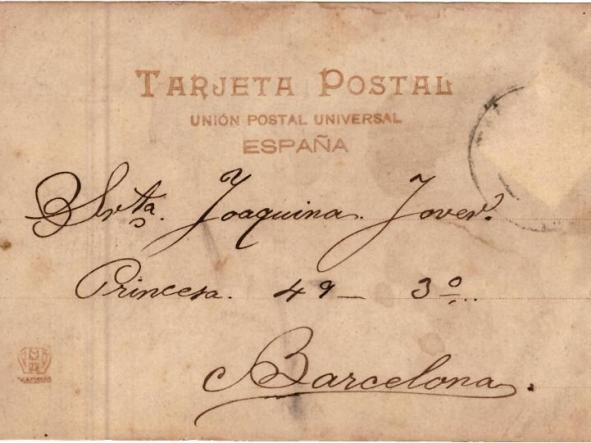 TARJETA POSTAL
UNIÓN POSTAL UNIVERSAL
ESPAÑA
Srta. Joaquina Jover.
Princesa. 49 — 3º.
Barcelona.